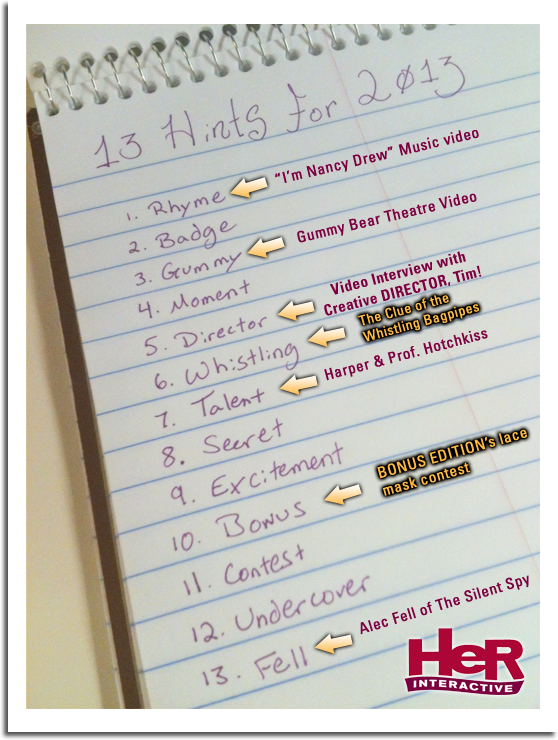 13 Hints for 2013
1. Rhyme
"I'm Nancy Drew" Music video
2. Badge
3. Gummy
Gummy Bear Theatre Video
4. Moment
5. Director
Video Interview with
Creative DIRECTOR, Tim!
6. Whistling
The Clue of the
Whistling Bagpipes
7. Talent
Harper & Prof. Hotchkiss
8. Secret
9. Excitement
10. Bonus
BONUS EDITION's lace
mask contest
11. Contest
12. Undercover
13. Fell
Alec Fell of The Silent Spy
HeR
INTERACTIVE